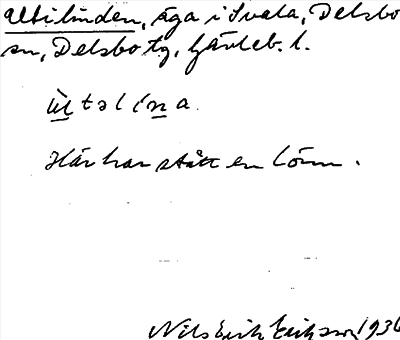 Ultilinden, äga i Svala, Delsbo
sn, Delsbo tg, Gävleb. l.
ùltəlína.
Här har stått en lönn.
Nils Erik Erikson 1936